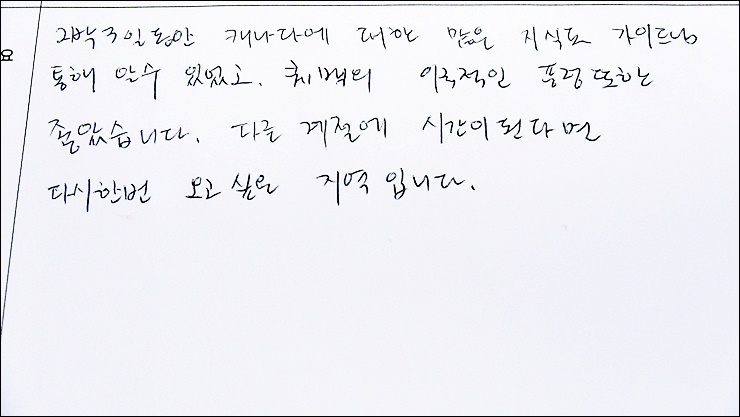 2박 3일동안 캐나다에 대한 많은 지식도 가이드님
통해 알수 있었고. 퀘백의 이국적인 풍경또한
좋았습니다. 다른 계절에 시간이된다면
다시한번 오고싶은 지역입니다.